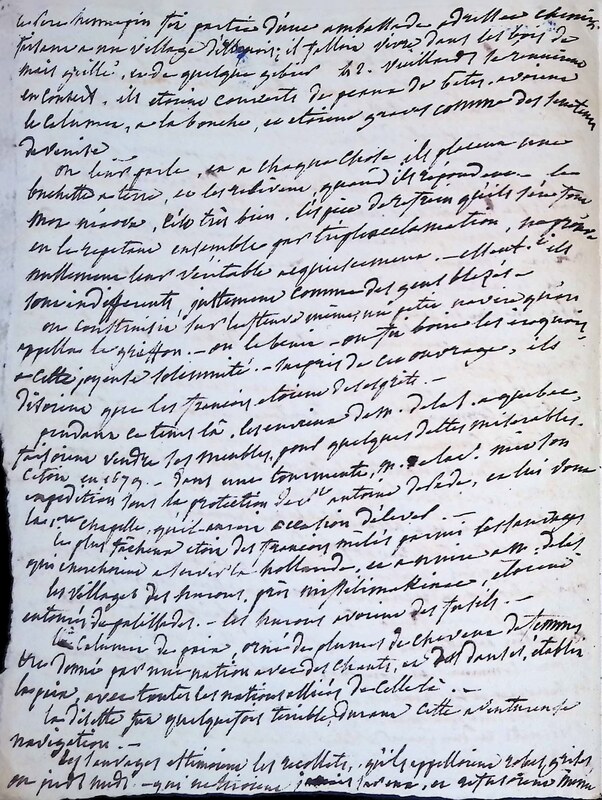 le père hennepin fut partie d'une ambassade adressée chemin
faisant a un village d'illinois; il fallut vivre dans les bois de
mais grillé, et de quelque gibier 42. vieillards le reçurent
en conseil. ils etoient couverts de peaux de betes, avoient
le calumet, a la bouche, et etoient graves comme des senateurs
de venise
on leur parle, et a chaque chose ils placent une
buchette a terre, et les relèvent, quand ils répondent - le
mot niaova, c'est très bien, espèce de refrein qu'ils
en le repetant ensemble par triple acclamation, n'exprime
nullement leur véritable acquiescement. - ils
sont indifferents, justement comme des gens blezés -
on construisit sur le fleuve même, un petit navire qu'on
appella le griffon. - on le benit - on fit boire les iroquois
a cette joyeuse solemnité. - surpris de cet ouvrage, ils
disoient que les françois etoient des esprits. -
pendant ce tems là, les envieux de m. de la s. a quebec,
faisoient vendre ses meubles, pour quelques dettes misérables.
c'etoit en 1679. - dans une tourmente, m. de la s. mit son
expedition sous la protection de st antoine de pade, et lui voua
la 1re chapelle, qu'il auroit occasion d'élever -
le plus facheux etoit des françois mêlés parmi les sauvages
qui cherchoient a servir la hollande, et a nuire a m. de la s
les villages des hurons, près missilimakinac, etoient
entourés de palissades. - les hurons avoient des fusils. -
le calumet de paix, orné de plumes de cheveux de femmes
est donné par une nation avec des chants, et des danses, établit
la paix, avec toutes les nations alliées de celle là. -
la disette fut quelquefois terrible durant cette aventureuse
navigation. -
les sauvages estimoient les recollets, qu'ils appelloient robes grises,
ou pieds nuds. - qui ne tiroient jamais, et refusoient même